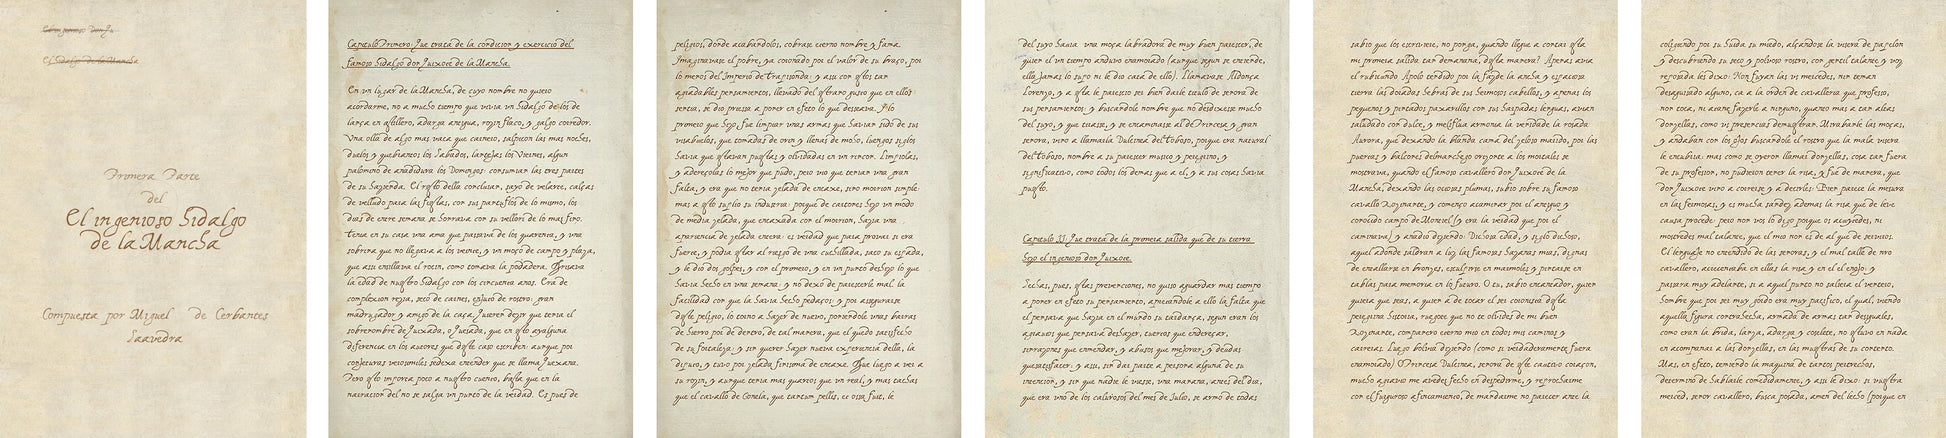 El ingenioso Don Qu
El Hidalgo de la Mancha
Primera Parte
del
El ingenioso hidalgo
de la Mancha
Compuesta por Miguel de Cerbantes
Saavedra
Capitulo Primero: Que trata de la condicion y exercicio del
famoso hidalgo don Quixote de la Mancha.
En un lugar de la Mancha, de cuyo nombre no quiero
acordarme, no a mucho tiempo que vivia un hidalgo de los de
lança en astillero, adarga antigua, rozin flaco, y galgo corredor.
Una olla de algo mas vaca que carnero, salpicon las mas noches,
duelos y quebrantos los Sabados, lantejas los Viernes, algun
palomino de añadidura los Domingos: consumian las tres partes
de su hazienda. El resto della concluian, sayo de velarte, calças
de velludo para las fiestas, con sus pantuflos de lo mismo, los
dias de entre semana se honrava con su vellori de lo mas fino.
Tenia en su casa una ama que passava de los quarenta, y una
sobrina que no llegava a los veinte, y un moço de campo y plaça,
que assi ensillava el rocin, como tomava la podadera. Frisava
la edad de nuestro hidalgo con los cincuenta años. Era de
complexion rezia, seco de carnes, enjuto de rostro: gran
madrugador y amigo de la caça. Quieren dezir que tenia el
sobrenombre de Quixada, o Quesada, que en esto ay alguna
diferencia en los autores que deste caso escriben: aunque por
conjeturas verosimiles se dexa entender que se llama Quexana.
Pero esto importa poco a nuestro cuento, basta que en la
narracion del no se salga un punto de la verdad. Es pues de
peligros, donde acabandolos, cobrase eterno nombre y fama.
Imaginavase el pobre, ya coronado por el valor de su braço, por
lo menos del Imperio de Trapisonda: y assi con estos tan
agradables pensamientos, llevado del estraño gusto que en ellos
sentia, se dio priessa a poner en efeto lo que desseava. Y lo
primero que hizo, fue limpiar unas armas que havian sido de sus
visabuelos, que tomadas de orin y llenas de moho, luengos siglos
havia que estavan puestas y olvidadas en un rincon. Limpiolas,
y aderezolas lo mejor que pudo, pero vio que tenian una gran
falta, y era que no tenia zelada de encaxe, sino morrion simple:
mas a esto suplio su industria: porque de cartones hizo un modo
de media zelada, que encaxada con el morrion, hazia una
apariencia de zelada entera: es verdad que para provar si era
fuerte, y podia estar al riesgo de una cuchillada, saco su espada,
y le dio dos golpes, y con el primero, y en un punto deshizo lo que
havia hecho en una semana: y no dexó de parecerle mal la
facilidad con que la havia hecho pedaços: y por assegurarse
deste peligro, lo tornó a hazer de nuevo, poniendole unas barras
de hierro por de dentro, de tal manera, que el quedó satisfecho
de su fortaleza: y sin querer hazer nueva experiencia della, la
diputo, y tuvo por zelada finissima de encaxe. Fue luego a ver a
su rozin, y aunque tenia mas quartos que un real, y mas tachas
que el cavallo de Gonela, que tantum pellis, et ossa fuit, le
del suyo havia una moça labradora de muy buen parecer, de
quien el un tiempo anduvo enamorado (aunque segun se entiende,
ella jamas lo supo ni le dio cata de ello). Llamavase Aldonça
Lorenzo, y a esta le parecio ser bien darle titulo de señora de
sus pensamientos: y buscandole nombre que no desdixesse mucho
del suyo, y que tirasse, y se encaminasse al de Princesa, y gran
señora, vino a llamarla Dulcinea del Toboso, porque era natural
del Toboso, nombre a su parecer musico y peregrino, y
significativo, como todos los demas que a el, y a sus cosas havia
puesto.
Capitulo II: Que trata de la primera salida que de su tierra
hizo el ingenioso don Quixote.
Hechas, pues, estas prevenciones, no quiso aguardar mas tiempo
a poner en efeto su pensamiento, apretandole a ello la falta que
el pensava que hazia en el mundo su tardança, segun eran los
agravios que pensava deshazer, tuertos que endereçar,
sinrazones que enmendar, y abusos que mejorar, y deudas
que satisfacer: y assi, sin dar parte a persona alguna de su
intencion, y sin que nadie le viesse, una mañana, antes del dia,
que era uno de los calurosos del mes de Julio, se armó de todas
sabio que los escriviere, no ponga, quando llegue a contar esta
mi primera salida tan demañana, desta manera? Apenas avia
el rubicundo Apolo tendido por la faz de la ancha y espaciosa
tierra las doradas hebras de sus hermosos cabellos, y apenas los
pequeños y pintados paxarillos con sus harpadas lenguas, avian
saludado con dulce, y meliflua armonia la venida de la rosada
Aurora, que dexando la blanda cama del zeloso marido, por las
puertas y balcones del manchego orizonte a los mortales se
mostrava, quando el famoso cavallero don Quixote de la
Mancha, dexando las ociosas plumas, subio sobre su famoso
cavallo Rozinante, y començo a caminar por el antiguo y
conocido campo de Montiel (y era la verdad que por el
caminava) y añadio diziendo: Dichosa edad, y siglo dichoso,
aquel adonde saldran a luz las famosas hazañas mias, dignas
de entallarse en bronzes, esculpirse en marmoles y pintarse en
tablas para memoria en lo futuro. O tu, sabio encantador, quien
quiera que seas, a quien a de tocar el ser coronista desta
peregrina historia, ruegote que no te olvides de mi buen
Rozinante, compañero eterno mio en todos mis caminos y
carreras. Luego bolvia diziendo (como si verdaderamente fuera
enamorado) O Princesa Dulcinea, señora de este cautivo coraçon,
mucho agravio me avedes fecho en despedirme, y reprocharme
con el riguroso afincamiento, de mandarme no parecer ante la
coligiendo por su huida su miedo, alçandose la visera de papelon
y descubriendo su seco y polvoroso rostro, con gentil talante y voz
reposada les dixo: Non fuyan las vs mercedes, nin teman
desaguisado alguno, ca a la orden de cavalleria que professo,
non toca, ni atañe fazerle a ninguno, quanto mas a tan altas
donzellas, como vs presencias demuestran. Miravanle las moças,
y andavan con los ojos buscandole el rostro que la mala visera
le encubria: mas como se oyeron llamar donzellas, cosa tan fuera
de su profesion, no pudieron tener la risa, y fue de manera, que
don Quixote vino a correrse, y a dezirles: Bien parece la mesura
en las fermosas, y es mucha sandez ademas la risa que de leve
causa procede: pero non vos lo digo porque os acuytedes, ni
mostredes mal talante, que el mio non es de al que de serviros.
El lenguaje no entendido de las señoras, y el mal talle de nro
cavallero, acrecentava en ellas la risa y en el el enojo: y
passara muy adelante, si a aquel punto no saliera el ventero,
hombre que por ser muy gordo era muy pacifico, el qual, viendo
aquella figura contrahecha, armada de armas tan desiguales,
como eran la brida, lança, adarga y coselete, no estuvo en nada
en acompañar a las donzellas, en las muestras de su contento.
Mas, en efeto, temiendo la maquina de tantos pertrechos,
determinó de hablarle comedidamente, y assi le dixo: si vuestra
merced, señor cavallero, busca posada, amen del lecho (porque en